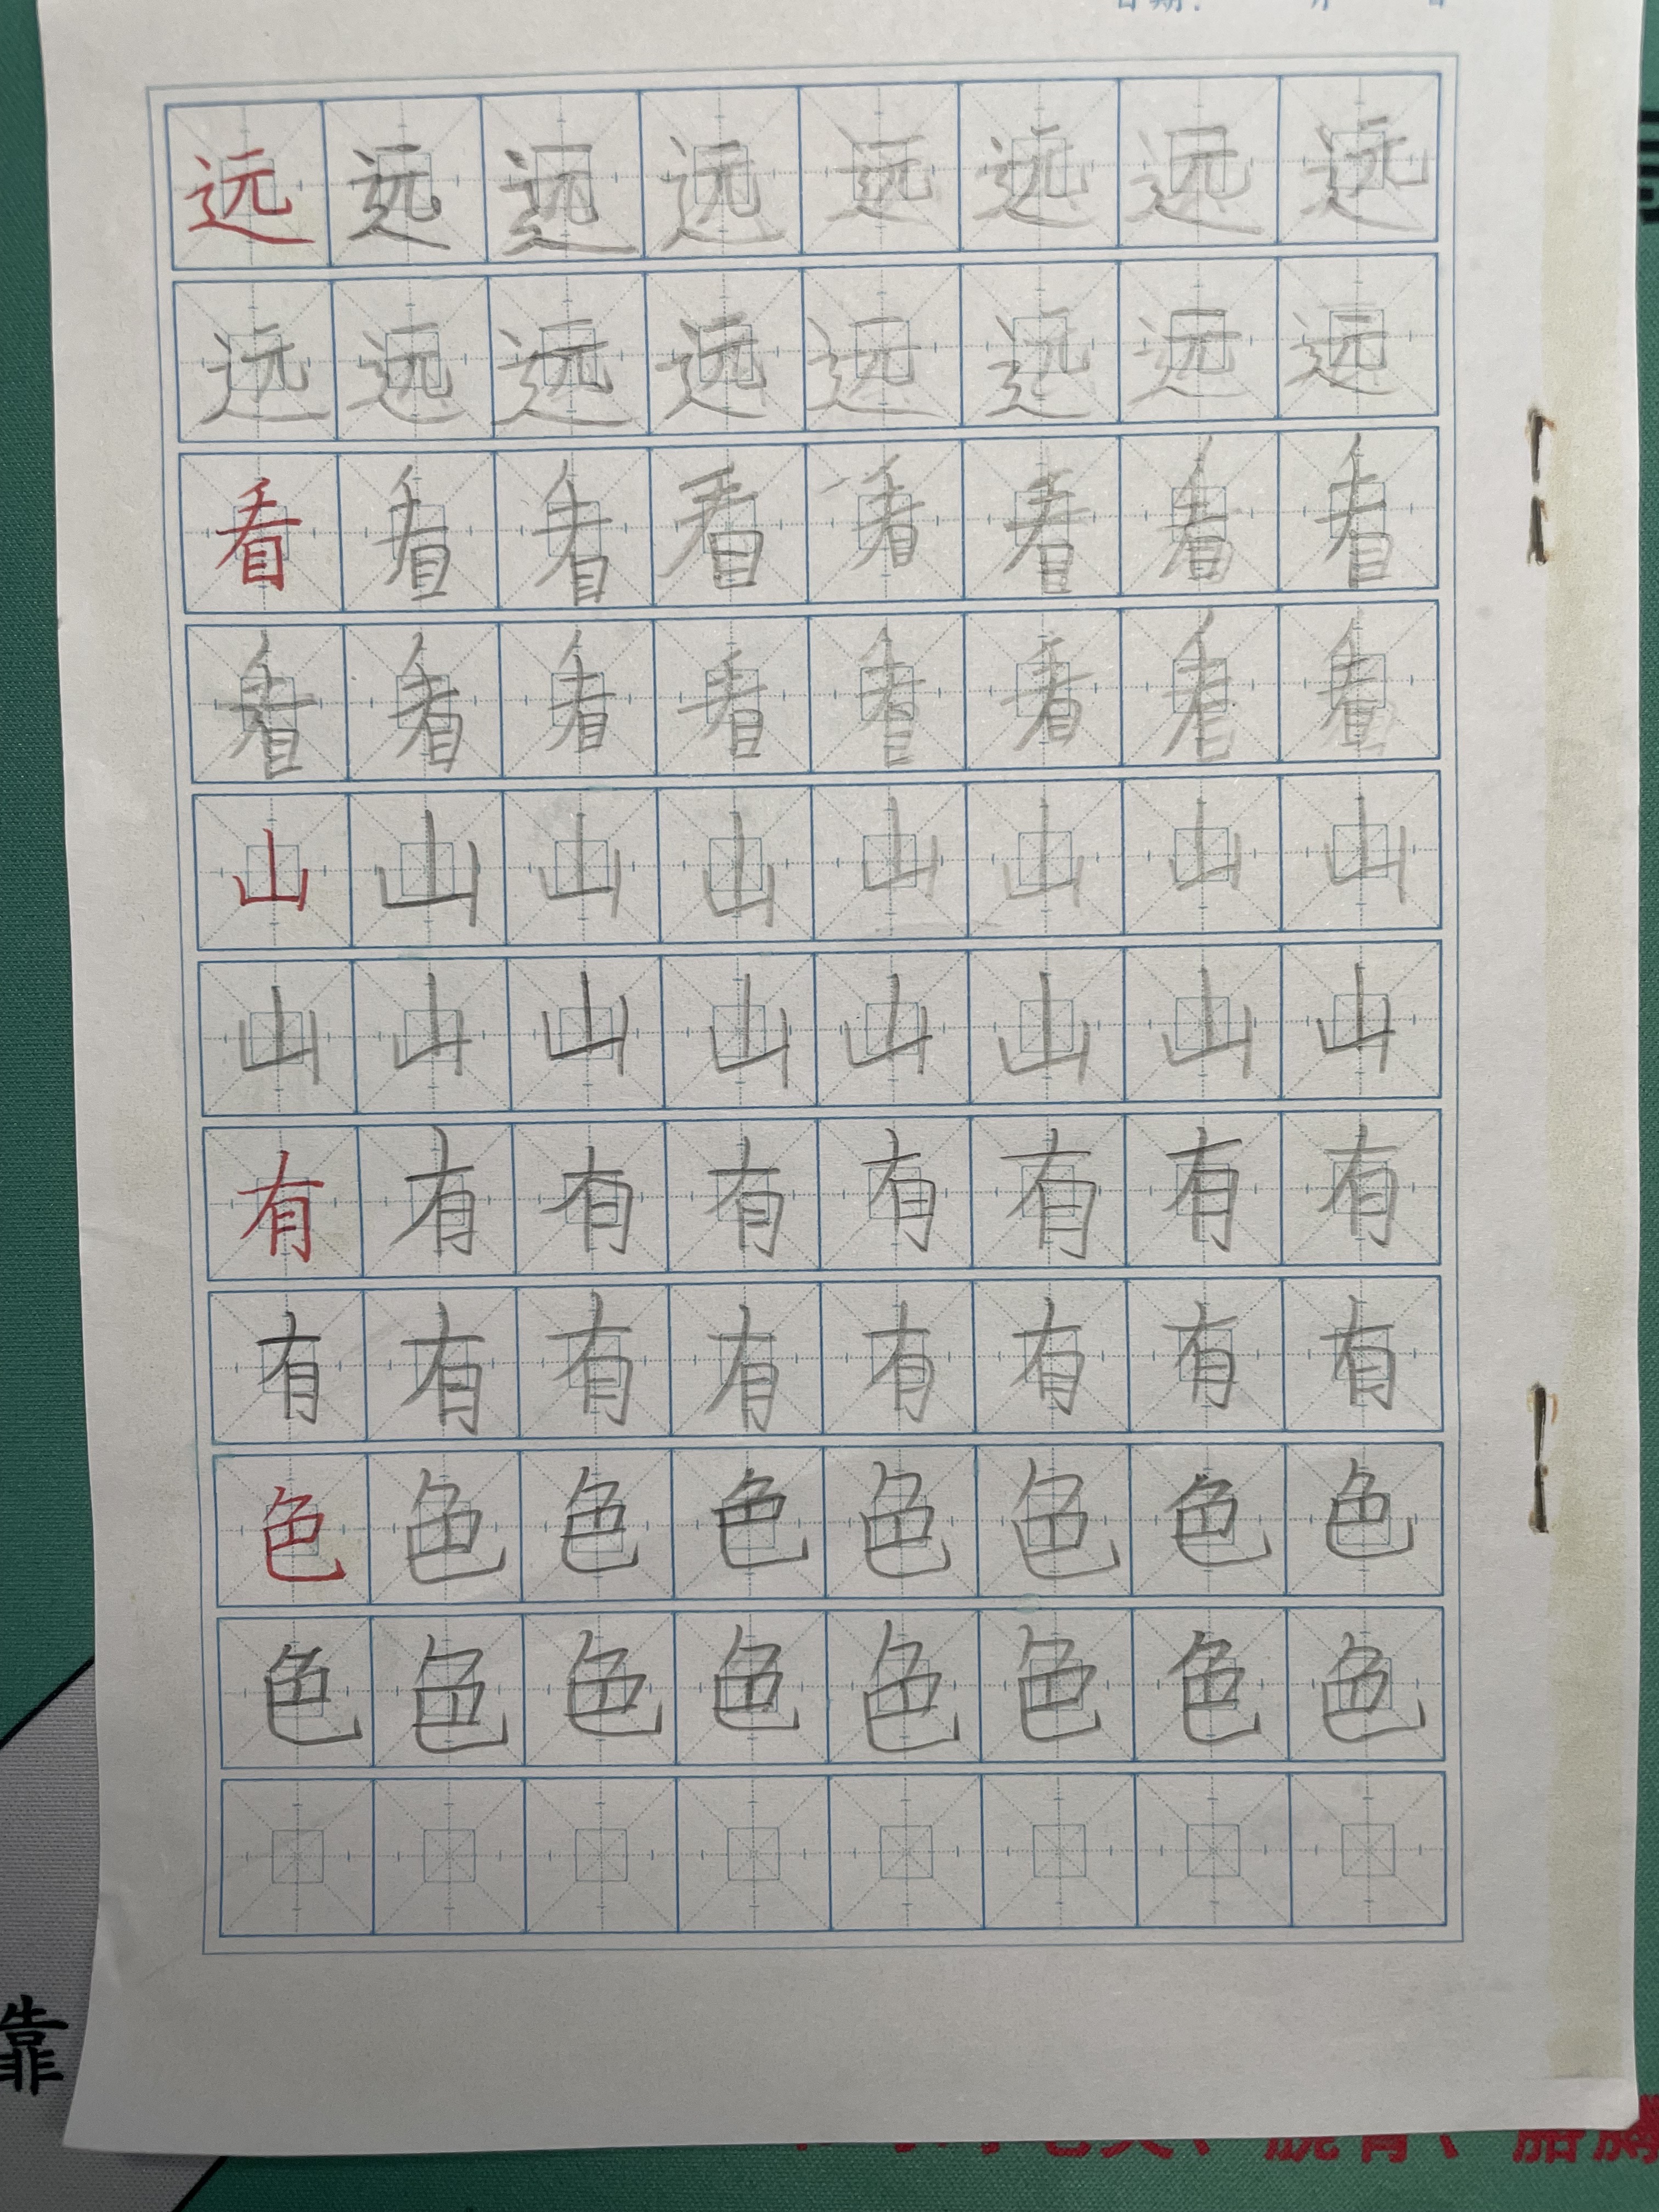 日期: 月 日
远远远远远远远远
远远远远远远远远
看看看看看看看看
看看看看看看看看
山山山山山山山山
山山山山山山山山
有有有有有有有有
有有有有有有有有
色色色色色色色色
色色色色色色色色
靠